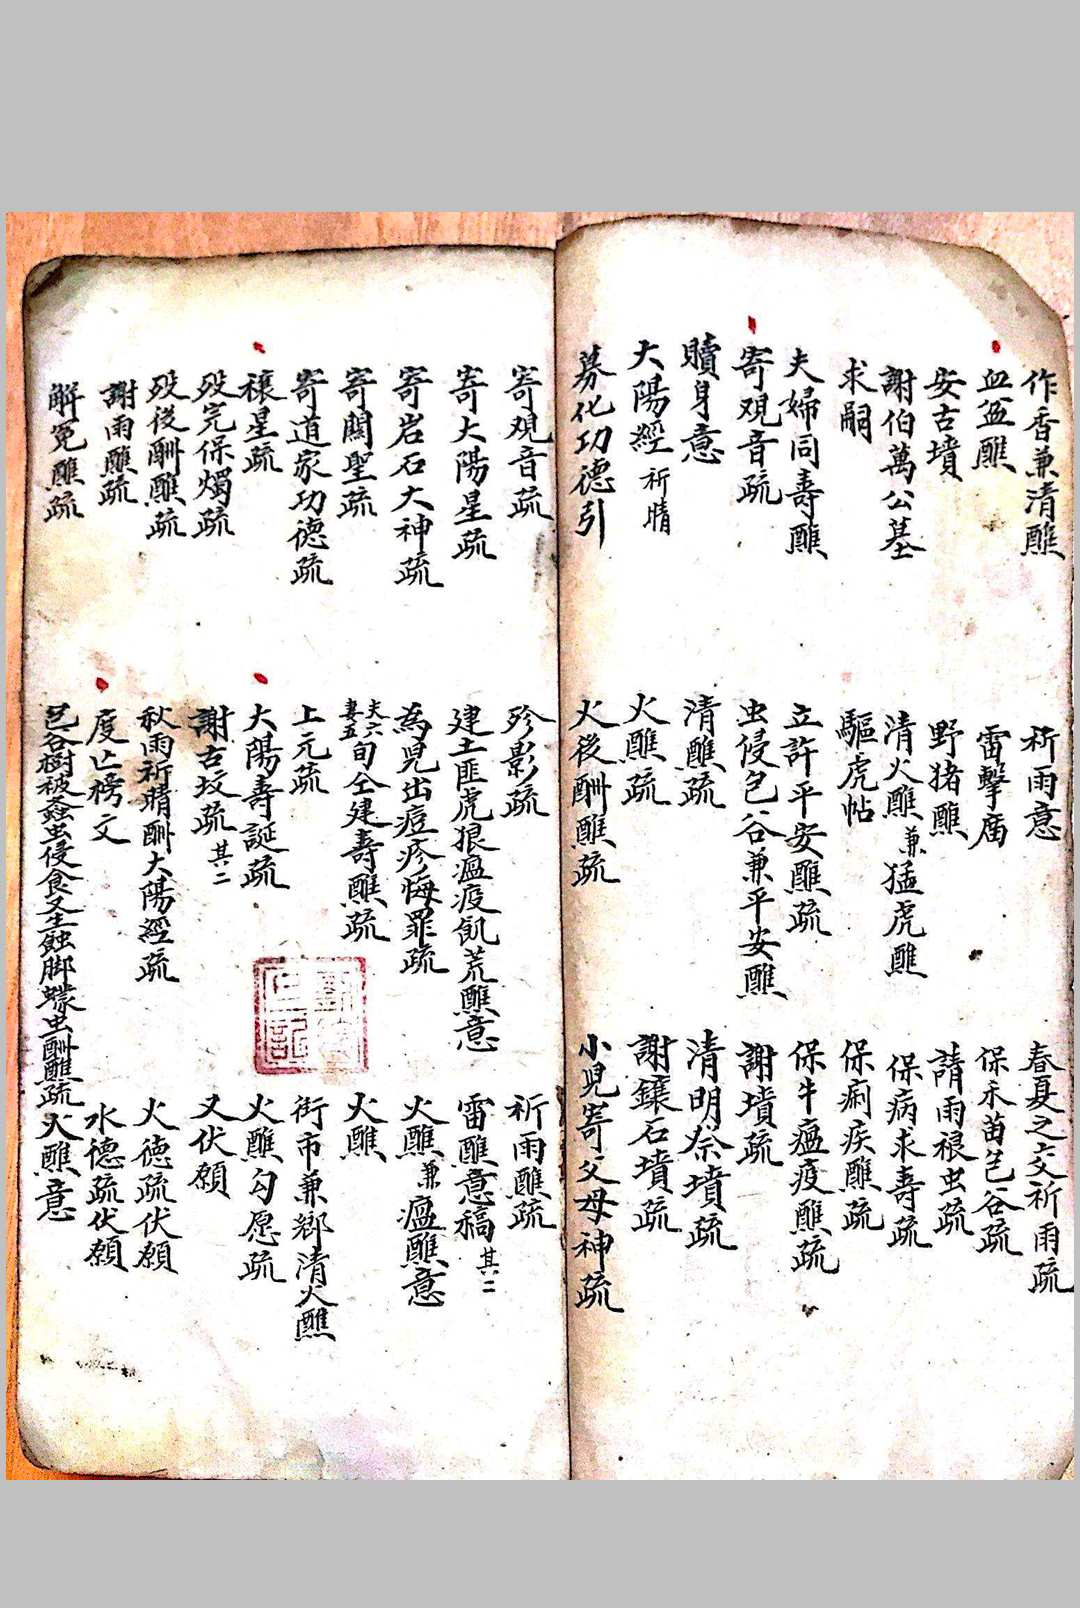 作香兼清醮
血盆醮
安古墳
謝伯萬公墓
求嗣
夫婦同壽醮
寄观音疏
贖身意
大陽經 祈晴
募化功德引
祈雨意
雷擊
野猪醮
清火醮兼猛虎醮
驅虎帖
立許平安醮疏
虫侵包谷兼平安醮
清醮疏
火醮疏
火後酬醮疏
春夏之交祈雨疏
保禾苗包谷疏
請雨禳虫疏
保病求壽疏
保痢疾醮疏
保牛瘟疫醮疏
謝墳疏
清明奈墳疏
謝鑲石墳疏
小児寄父母神疏
寄观音疏
寄大陽星疏
寄岩石大神疏
寄關聖疏
寄道家功德疏
禳星疏
殁完保燭疏
殁後酬醮疏
謝雨醮疏
解冤醮疏
殄影疏
建土匪虎狼瘟疫飢荒醮意
為児出痘疹悔罪疏
夫六妻五旬仝建壽醮疏
上元疏
大陽壽誕疏
謝古坟疏 其二
秋雨祈晴酬大陽經疏
度亡榜文
包谷樹被螽虫侵食又生蝕脚蠓虫酬醮疏
祈雨醮疏
雷醮意稿 其二
火醮兼瘟醮意
火醮
街市兼鄉清火醮
火醮勾愿疏
又伏願
火德疏伏願
水德疏伏願
火醮意